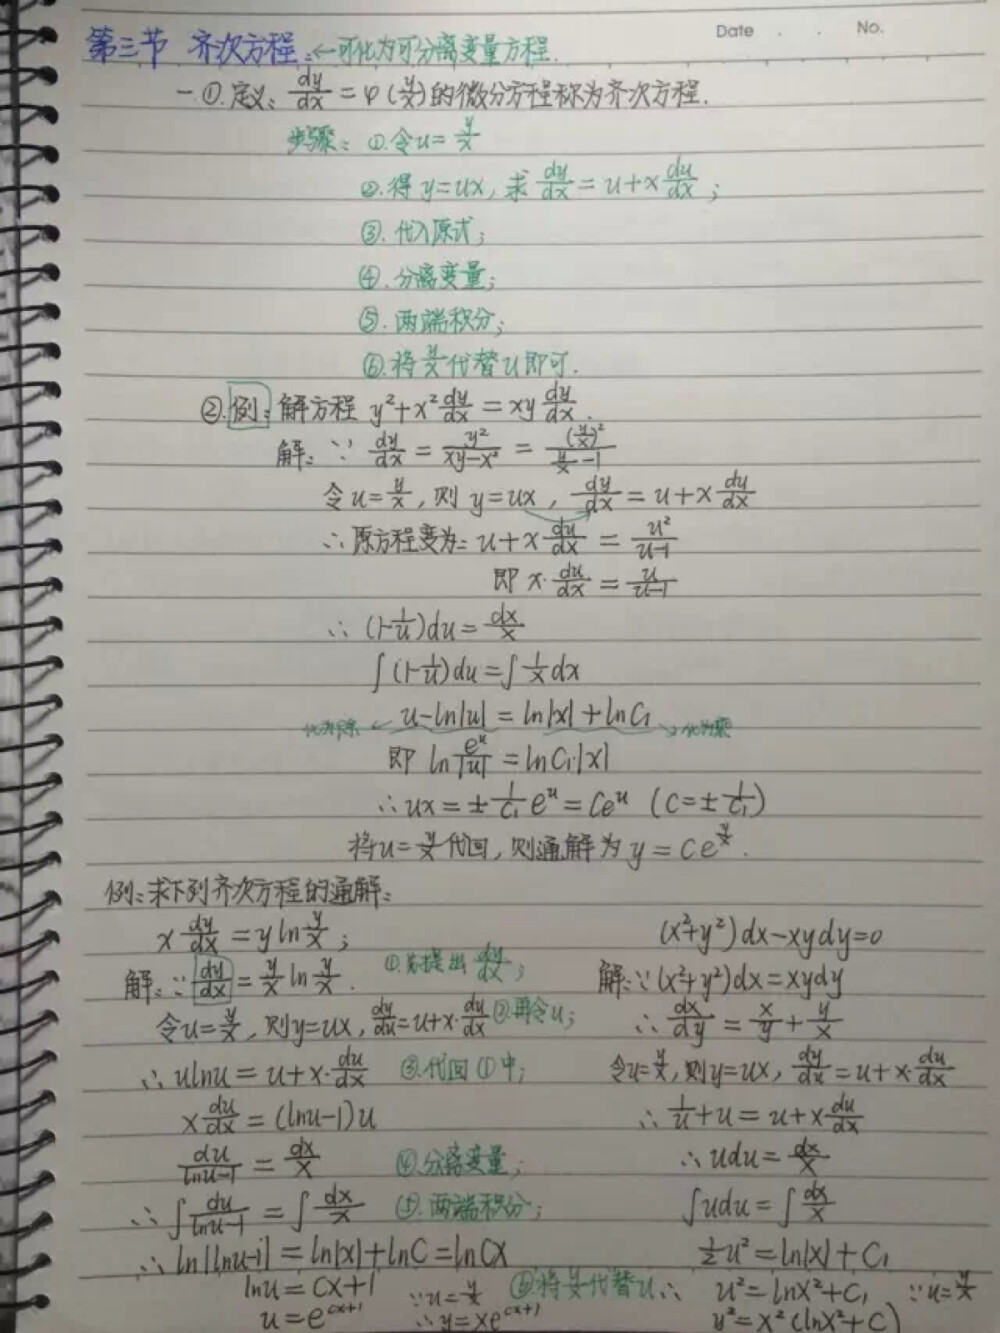 Date . . No.
第三节 齐次方程:←可化为可分离变量方程.
一.①.定义: dy/dx = φ(y/x)的微分方程称为齐次方程.
步骤: ①.令u = y/x
②.得 y=ux, 求 dy/dx = u+x du/dx ;
③.代入原式;
④.分离变量;
⑤.两端积分;
⑥.将y/x代替u即可.
②.例: 解方程 y²+x² dy/dx = xy dy/dx .
解: ∵ dy/dx = y²/(xy-x²) = (y/x)²/(y/x -1)
令u= y/x, 则 y=ux, dy/dx = u+x du/dx
∴原方程变为: u+x du/dx = u²/(u-1)
即 x· du/dx = u/(u-1)
∴ (1-1/u)du = dx/x
∫(1-1/u)du = ∫ 1/x dx
化为除 ← u-ln|u| = ln|x|+lnC₁ → 化为乘
即 ln e^u/|u| = lnC₁|x|
∴ux = ± 1/C₁ e^u = Ce^u (C=± 1/C₁)
将u= y/x 代回, 则通解为 y = Ce^(y/x) .
例:求下列齐次方程的通解:
x dy/dx = y ln y/x ;
解:∵ dy/dx = y/x ln y/x . ①.先提出 dy/dx ;
令u= y/x, 则y=ux, dy/du = u+x· dy/dx ②.再令u;
∴ulnu = u+x· du/dx ③.代回①中;
x du/dx = (lnu-1)u
du/(lnu-1) = dx/x ④.分离变量;
∴∫ du/(lnu-1) = ∫ dx/x ⑤.两端积分;
∴ln|lnu-1| = ln|x|+lnC = lnCx
lnu = Cx+1 ⑥将y/x代替u
u = e^(cx+1) ∵u= y/x ∴y= xe^(cx+1)
(x²+y²)dx-xydy=0
解:∵(x²+y²)dx = xydy
∴ dx/dy = x/y + y/x
令u= y/x, 则y=ux, dy/du = u+x· du/dx
∴ 1/u +u = u+x du/dx
∴udu = dx/x
∫udu = ∫ dx/x
½u² = ln|x|+C₁
∴ u² = lnx²+C₁ ∵u= y/x
y² = x²(lnx²+C)